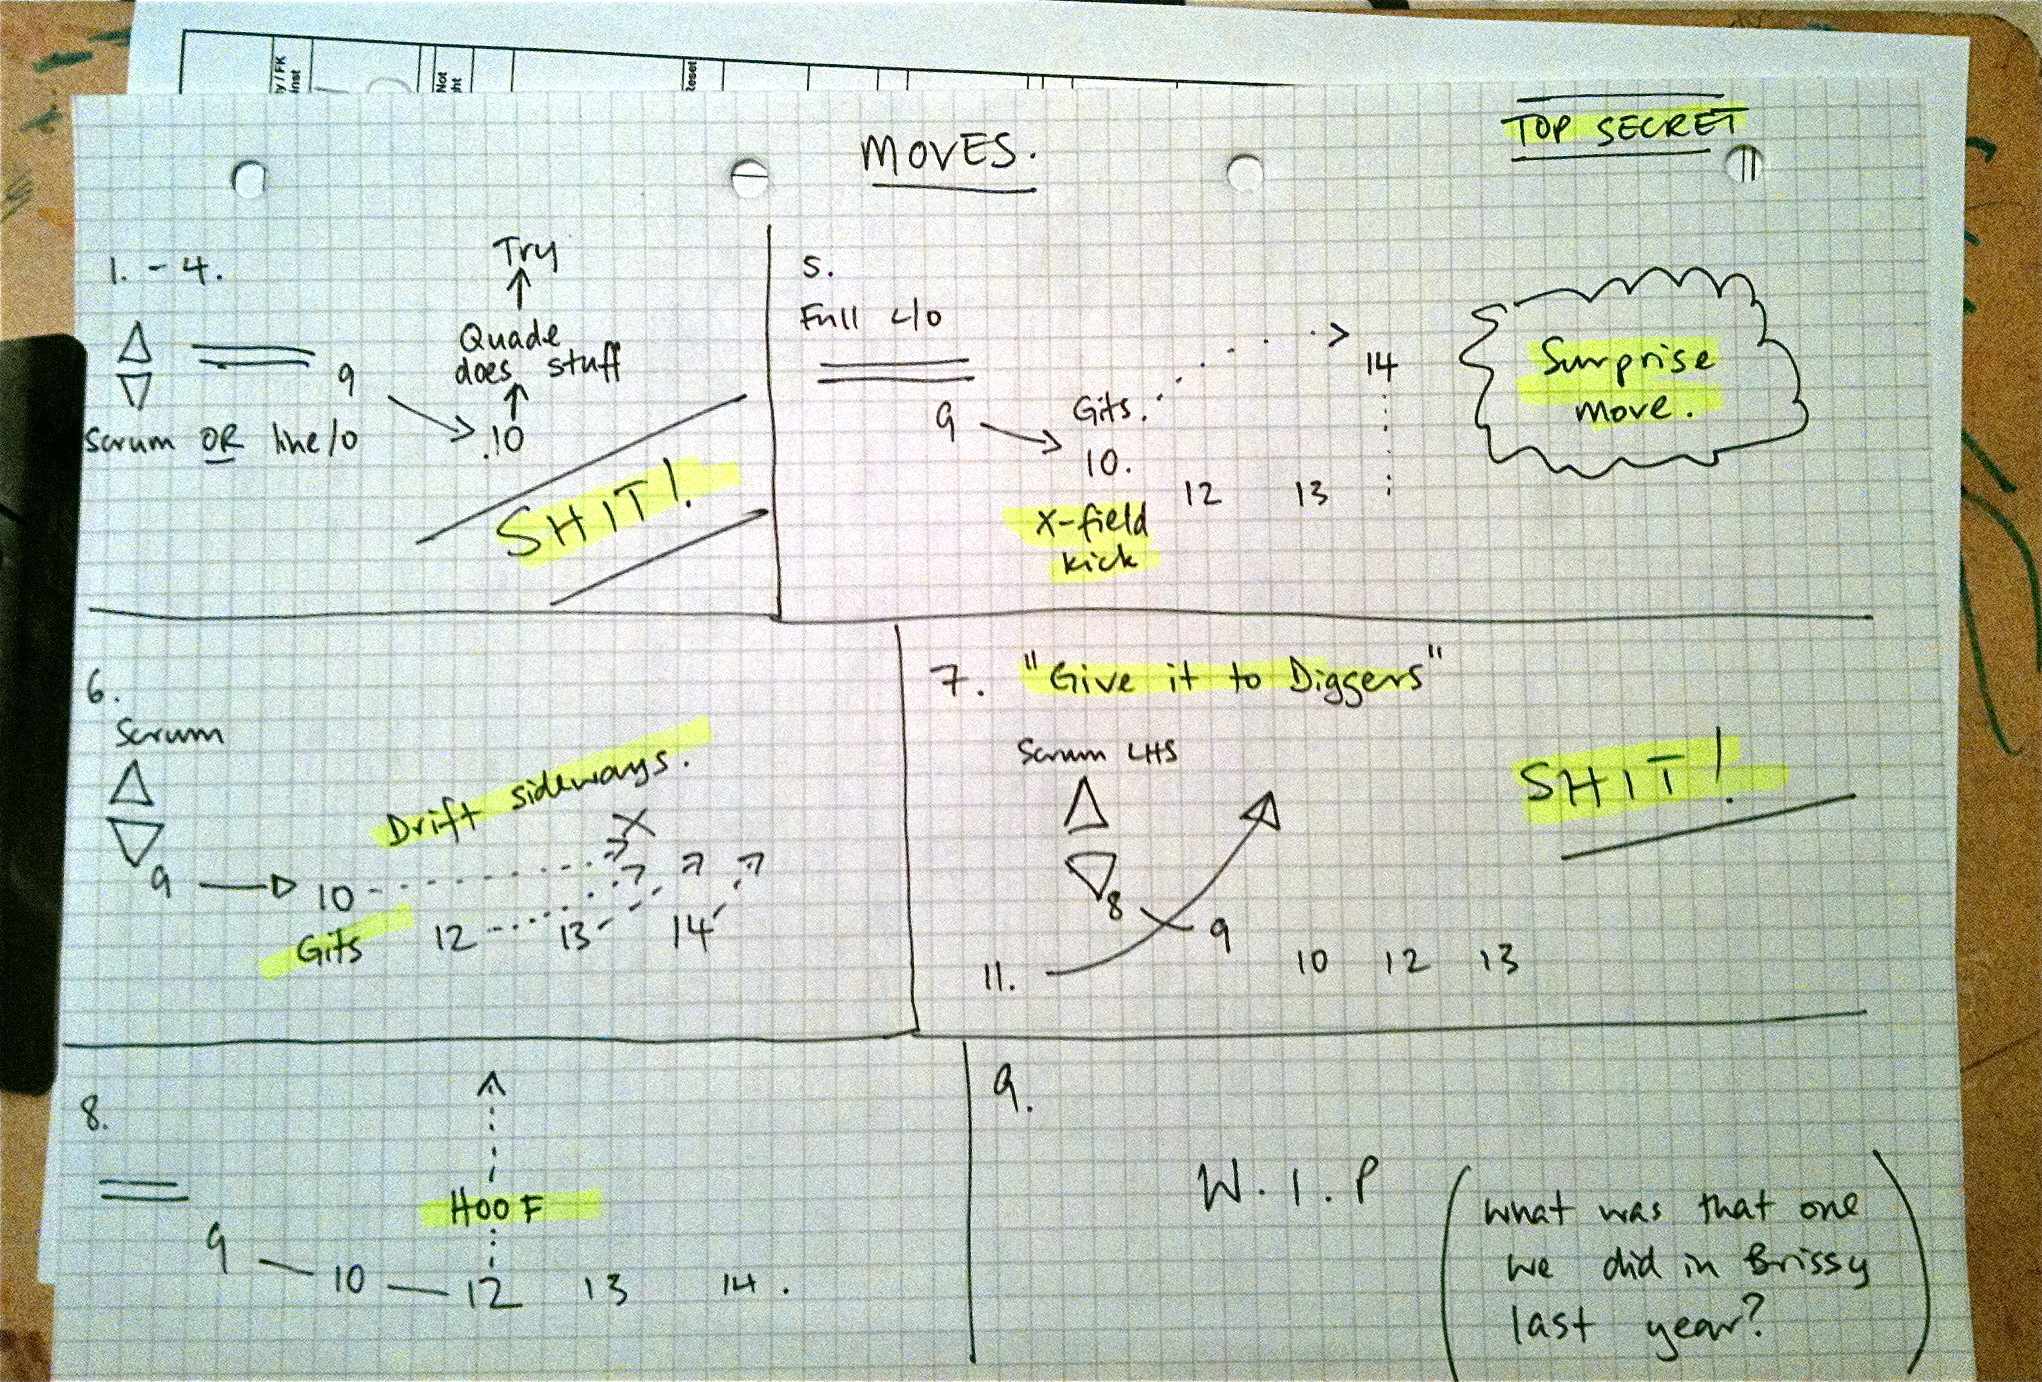 y / FK
inst
Not
ght
Reset
TOP SECRET
MOVES.
1. - 4.
Try
Quade
does stuff
9
.10
Scrum OR line/o
SHIT!
5.
Full L/O
9
Gits.
10.
14
12 13
X-field
kick
Surprise
move.
6.
Scrum
Drift sideways.
X
9 10
Gits 12 13 14
7. "Give it to Diggers"
Scrum LHS
SHIT!
8
9
11. 10 12 13
8.
HOOF
9
10 12 13 14.
9.
W.I.P
(what was that one
we did in Brissy
last year?)